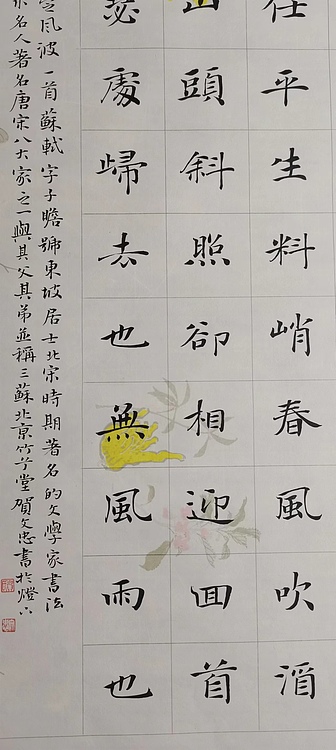 任平生料峭春風吹酒
山頭斜照卻相迎回首
瑟處歸去也無風雨也
風波一首蘇軾字子瞻號東坡居士北宋時期著名的文學家書法
名人著名唐宋八大家之一與其父其弟並稱三蘇北京竹子堂賀文忠書於燈下